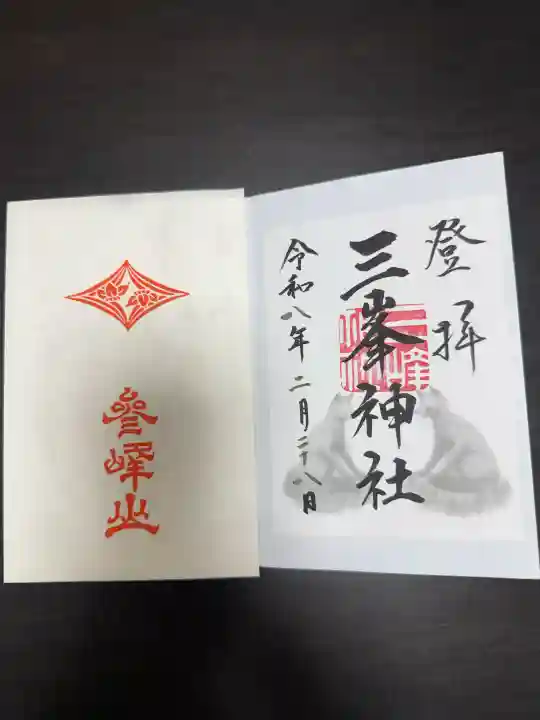 登拝
三峯神社
令和八年二月二十八日
參峰山